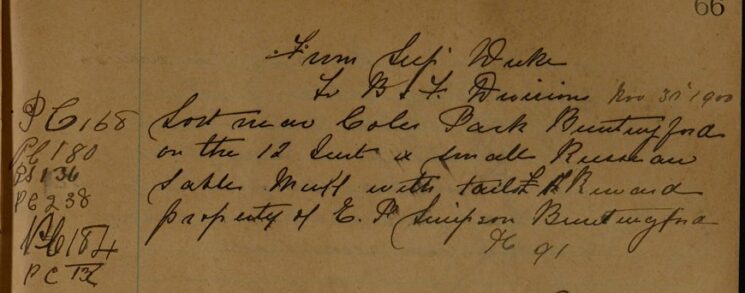 66
From Supt Duke
To B & F. Divisions Nov 3rd 1900
PC 168
PC 180
PS 136
PC 238
PC 184
PC
Lost near Coles Park Buntingford
on the 12 Inst a small Russian
Sable Muff with tails Reward
property of E. P. Simpson Buntingford
91